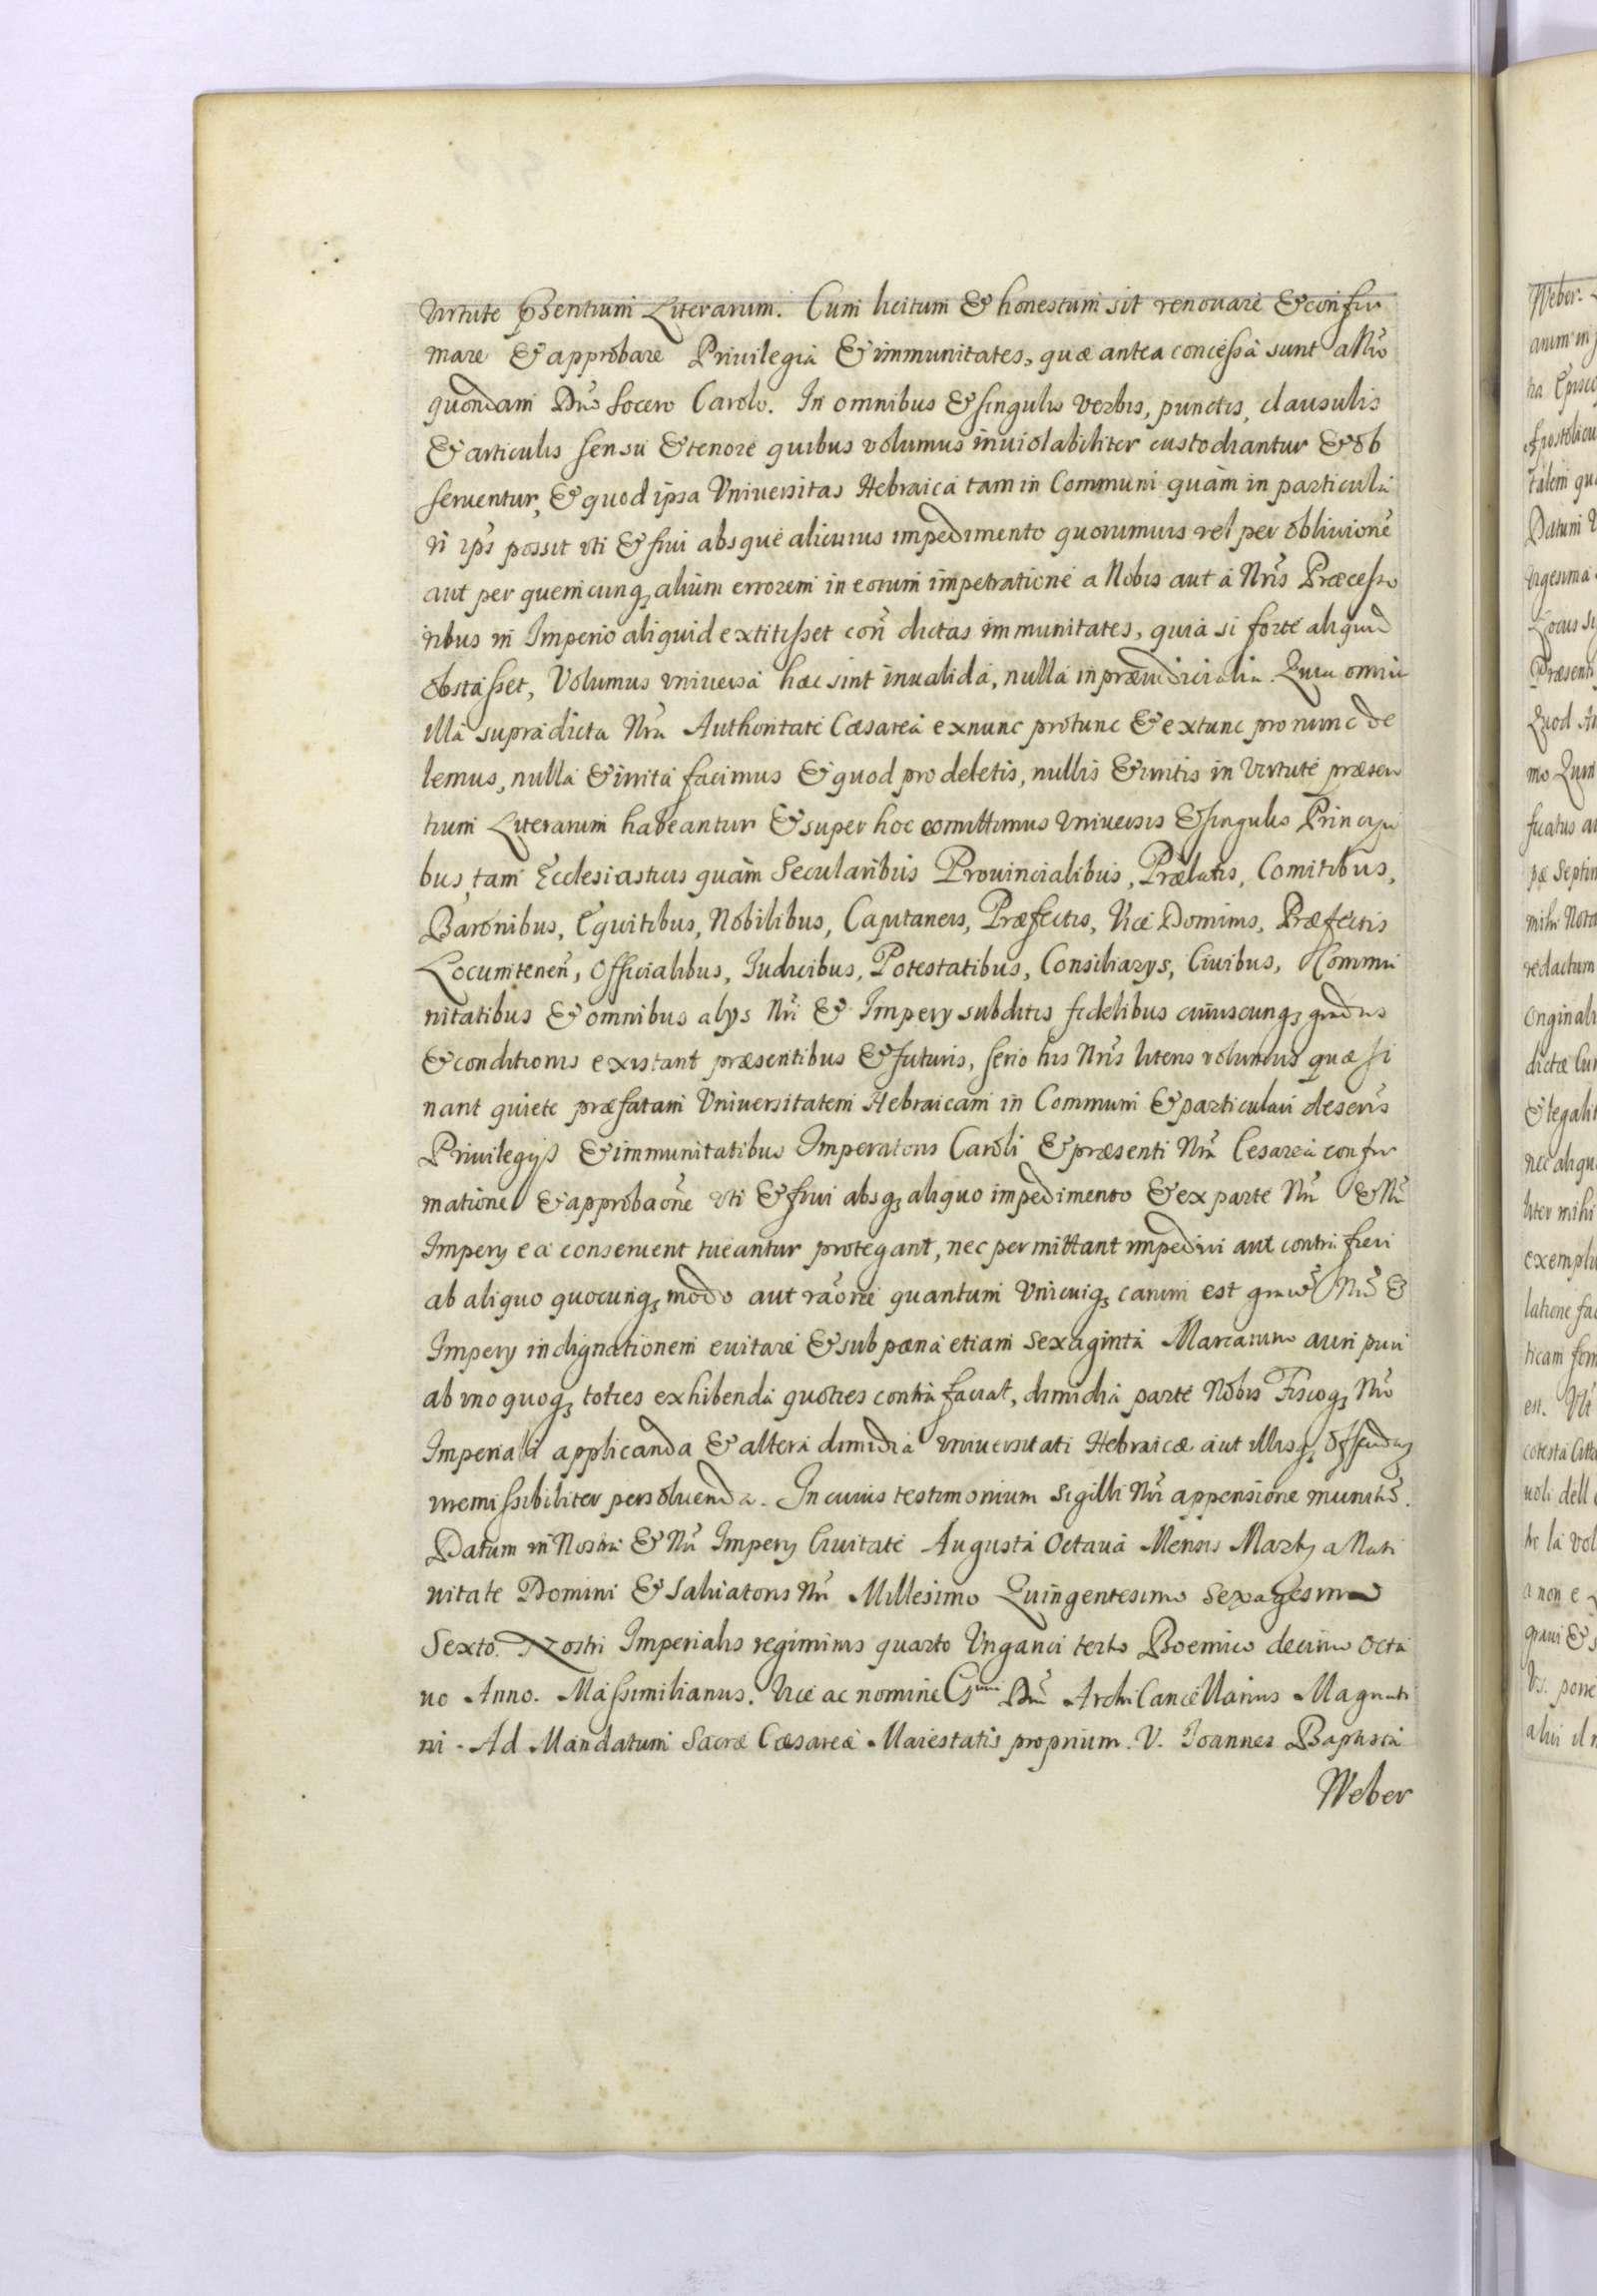 Virtute pn̄sentium Literarum. Cum licitum & honestum sit renouare & confir
mare & approbare Priuilegia & immunitates, quæ antea concessa sunt a Nr̃o
quondam Dño Socero Carolo. In omnibus & singulis verbis, punctis, clausulis
& articulis sensu & tenore quibus volumus inuiolabiliter custodiantur & ob
seruentur, & quod ipsa Vniuersitas Hebraica tam in Communi quàm in particula
ri ips possit vti & frui absque alicuius impedimento quorumuis vel per obliuionẽ
aut per quemcunq; alium errorem in eorum impetratione a Nobis aut à Nr̃is Præcesso
ribus in Imperio aliquid extitisset coñ dictas immunitates, quia si forte aliquid
obstasset, Volumus vniuersa hæc sint inualida, nulla inpræiudicialia. Quia omnia
illa supradicta Nr̃a Authoritate Cæsarea exnunc protunc & extunc pro nunc de
lemus, nulla & irrita facimus & quod pro deletis, nullis & irritis in virtute præsen
tium Literarum habeantur & super hoc comittimus vniuersis & singulis Principi
bus, tam Ecclesiasticis quàm Secularibus Prouincialibus, Prælatis, Comitibus,
Baronibus, Equitibus, Nobilibus, Capitaneis, Præfectis, Vice Dominis, Præfectis
Locumteneñ, Officialibus, Iudicibus, Potestatibus, Consiliarys, Ciuibus, Commu
nitatibus & omnibus alys Nr̃i & Impery subditis fidelibus cuiuscunq; gradus
& conditionis existant præsentibus & futuris, serio his Nr̃is literis volumus quæ si
nant quiete præfatam Vniuersitatem Hebraicam in Communi & particulari deseris
Priuilegijs & immunitatibus Imperatoris Caroli & præsenti Nr̃a Cesarea confir
matione & approbaõne vti & frui absq; aliquo impedimento & ex parte Nr̃i & Nr̃i
Impery ea conseruent tueantur protegant, nec permittant impediri aut contra fieri
ab aliquo quocunq; modo aut raõne quantum Vnicuiq; carum est grauẽ Nr̃ã &
Impery indignationem euitare & sub pœna etiam Sexaginta Marcarum auri puri
ab vno quoq; toties exhibenda quoties contra faciat, dimidia parte Nobis Fiscoq; Nr̃o
Imperiali applicanda & altera dimidia vniuersitati Hebraicæ aut illisq; offendũt
irremissibiliter persoluenda. In cuius testimonium Sigilli Nr̃i appensione munitas.
Datum in Nostra & Nr̃i Impery Ciuitate Augusta Octaua Mensis Marty a Nati
uitate Domini & Saluatoris Nr̃i Millesimo Quingentesimo Sexagesimo
Sexto. Nostri Imperialis regiminis quarto Vngarici tertio Boemico decimo octa
uo Anno. Massimilianus. Vice ac nomine Dñi Archi Cancellarius Magunti
ni - Ad Mandatum Sacræ Cæsareæ Maiestatis proprium. V. Ioannes Baptista
Weber